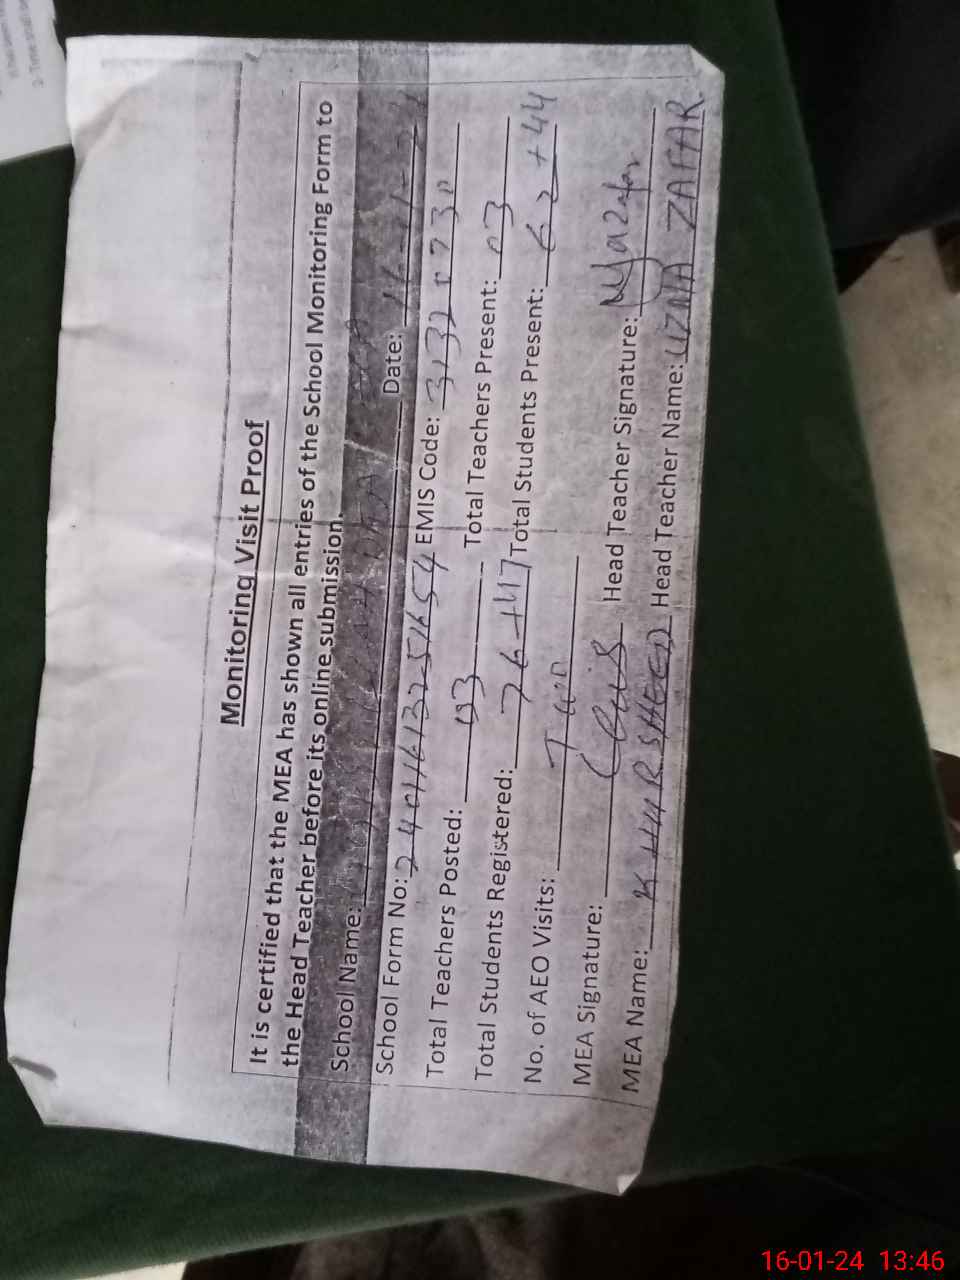 Monitoring Visit Proof
It is certified that the MEA has shown all entries of the School Monitoring Form to
the Head Teacher before its online submission.
School Name:
Date: 16-01-24
School Form No: 240116132251654 EMIS Code: 31320730
Total Teachers Posted: 03 Total Teachers Present: 03
Total Students Registered: 76+47 Total Students Present: 62+44
No. of AEO Visits: Two
MEA Signature: Head Teacher Signature:
MEA Name: KHURSHEED Head Teacher Name: UZMA ZAFAR
16-01-24 13:46